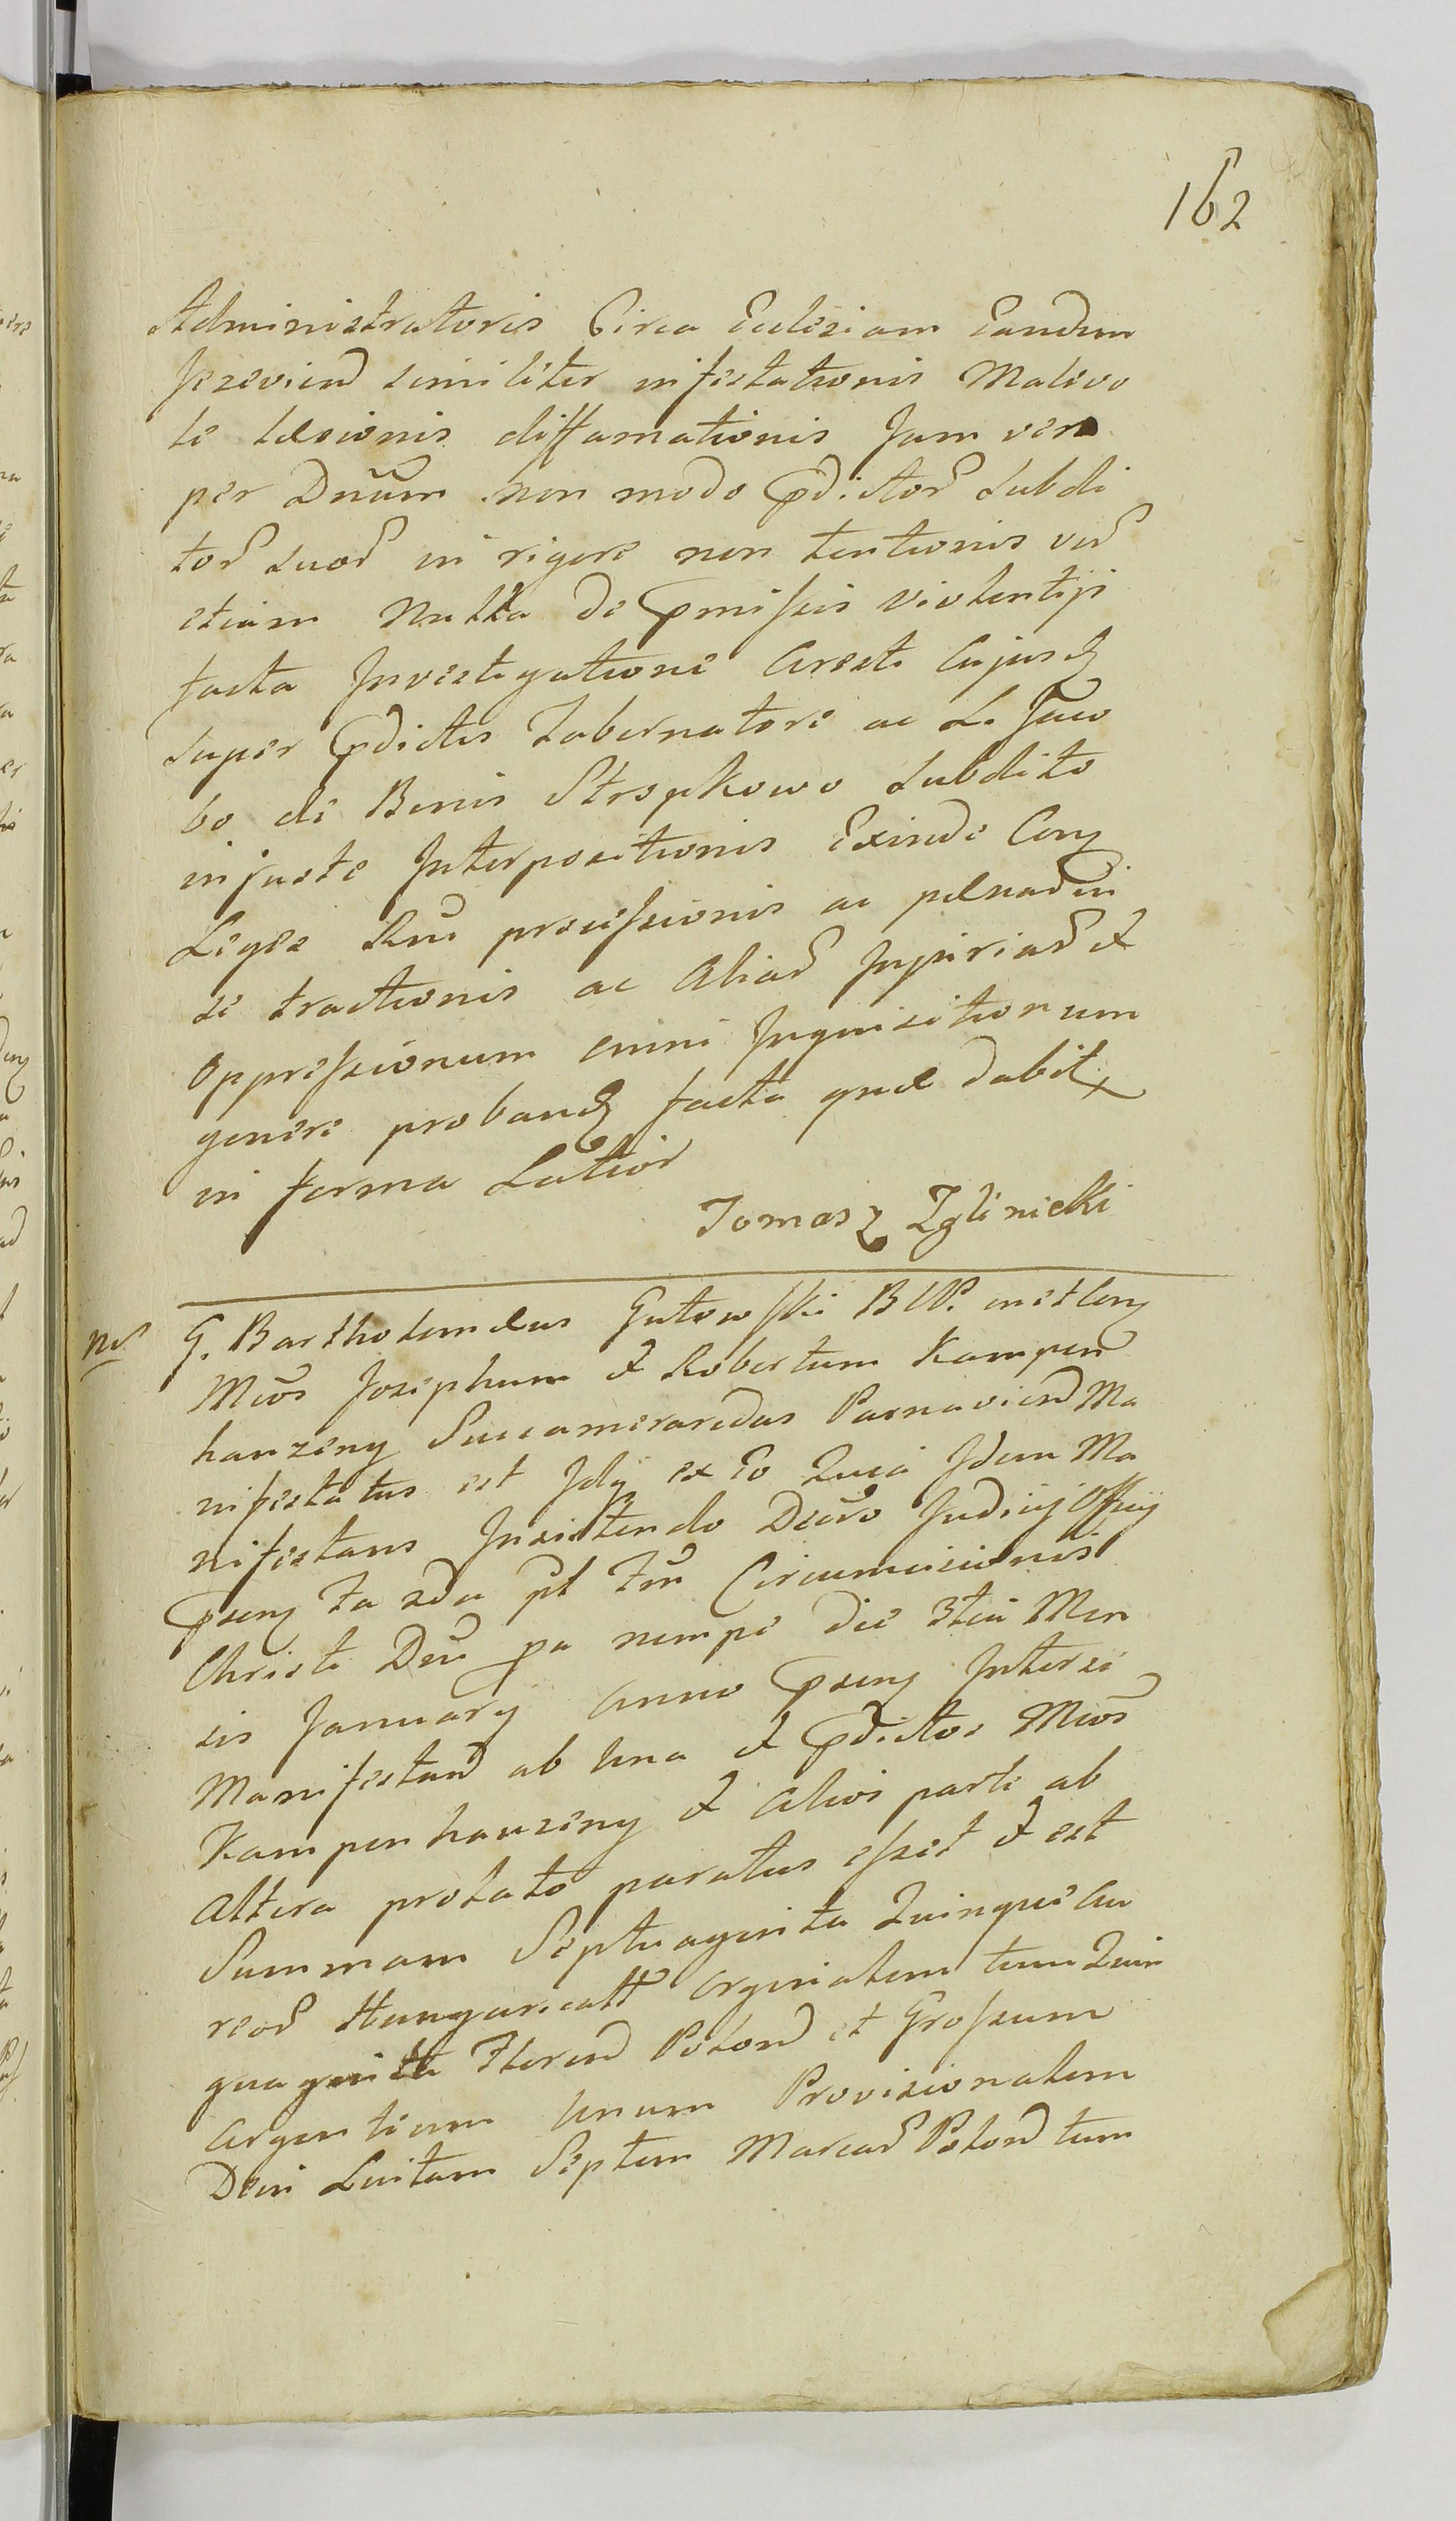 162
Administratoris Circa Eclesiam Eandem
servien similiter infestationis Malevo
le læsionis diffamationis Jam vero
per Dnum non modo pdictor Subdi
tor suor in rigore non tentionis ver
etiam Nulla de pmissis violentijs
facta Investigatione Aresti Cujusq
super pdictis Tabernatore ac L. Jaco
bo de Bonis Stropkowo Subdito
injuste Interpositionis Exinde Conq
Leges Rni processionis ac pœnar in
se tractionis ac Aliar Injuriar et
oppressionum omni Inquisitionum
genere proband facta quæ dabit
in forma Latior
Tomasz Zglinicki
Ms
G. Bartholemæus Gutowski B CP. metlenq
Mcos Josephum et Robertum Kampen
hauzeny Succameraridas Parnavien Ma
nifestatus est Idq ex Eo Quia Idem Ma
nifestans Insistendo Decro Judicij Officij
psenq fa zda pt Frn Circumcisionis
Christi Dni pa nempe die 3tia Men
sis January Anno psenq Inter se
Manifestan ab Una et pdictos Mcos
Kampenhauzeny et Alios parte ab
Altera prolato paratus esset et est
Summam Septuaginta Quinque Au
reor Hungaricall orginalem tum Quin
quaginta Floren Polon et Grossum
argenteum Unum Provisionalem
Dein Luitam Septem Marcar Polon tum